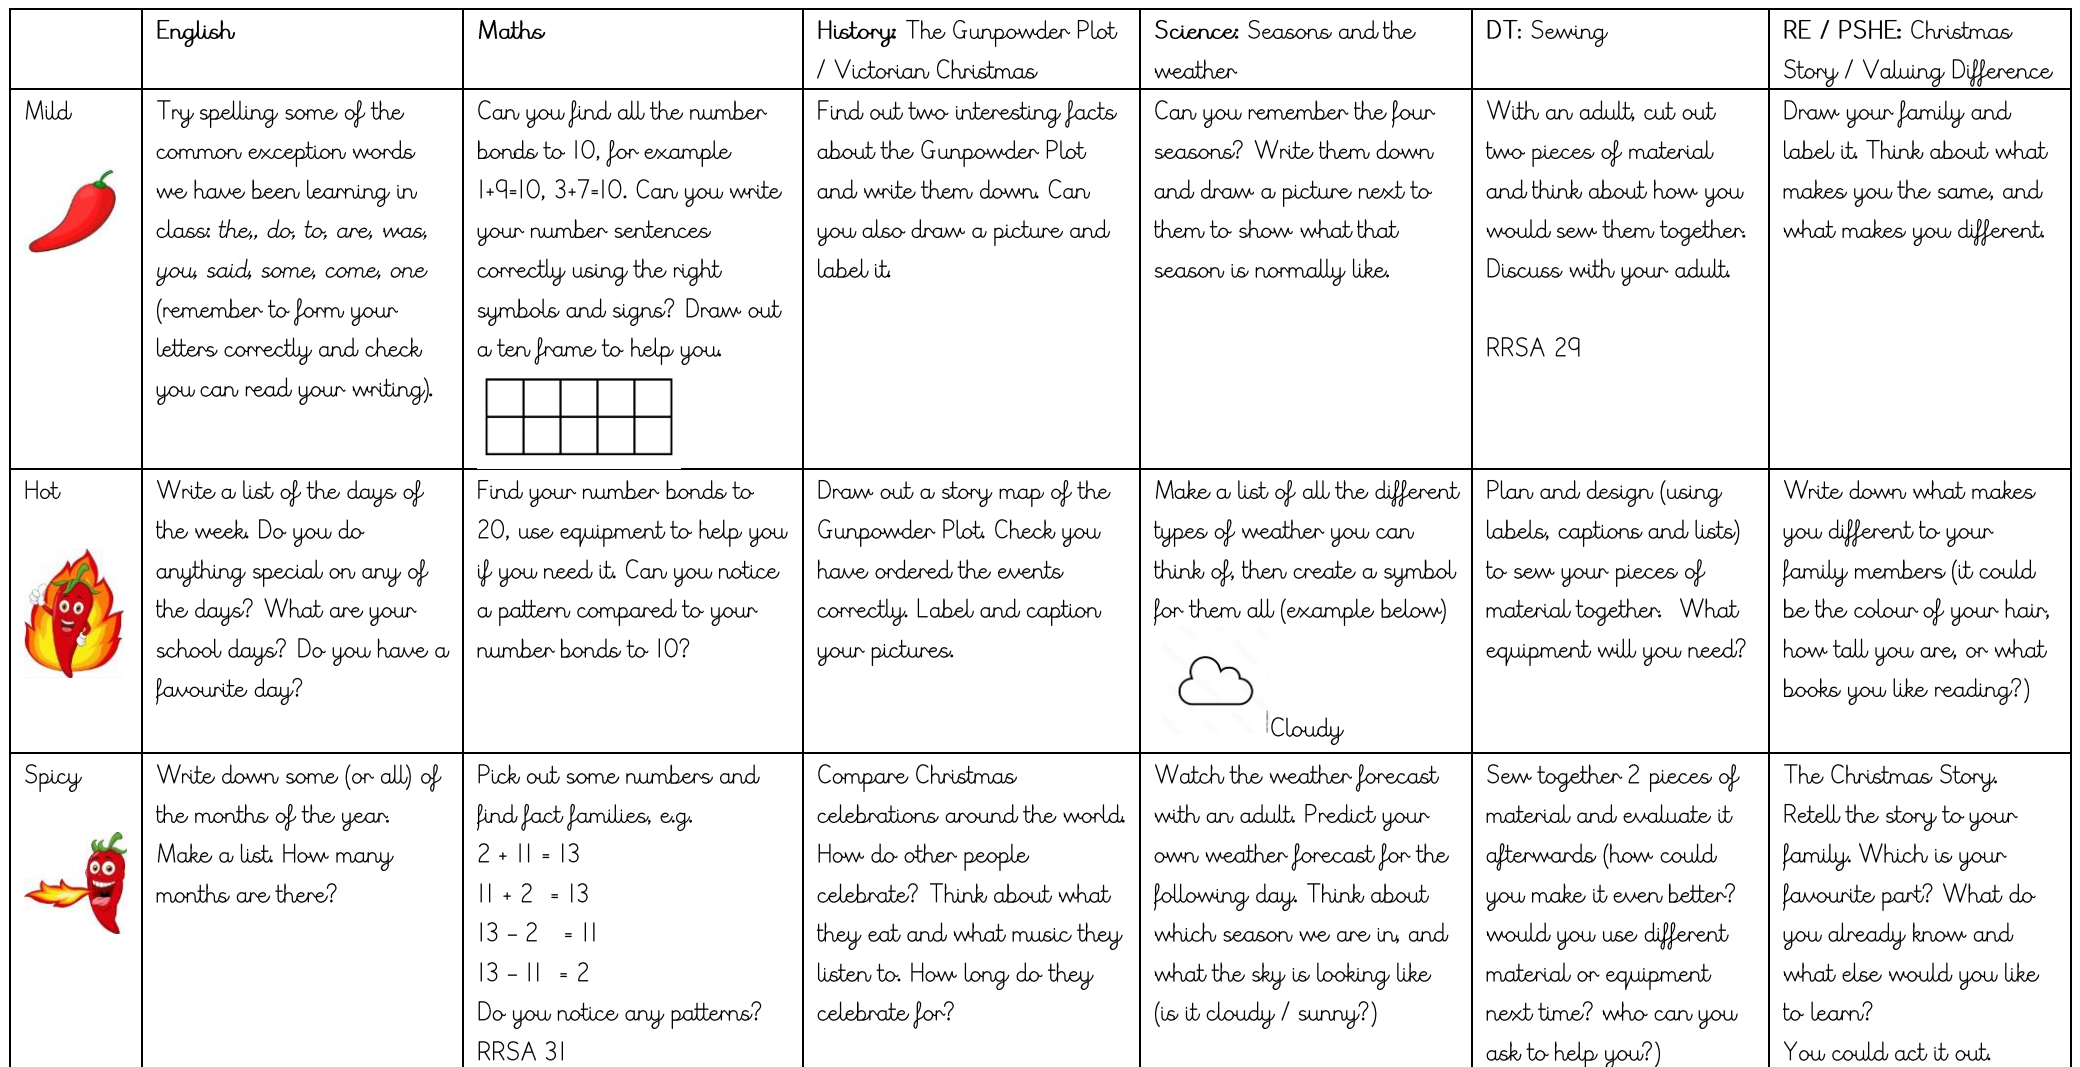 English
Maths
History: The Gunpowder Plot
/ Victorian Christmas
Science: Seasons and the
weather
DT: Sewing
RE / PSHE: Christmas
Story / Valuing Difference
Mild
Try spelling some of the
common exception words
we have been learning in
class: the,, do, to, are, was,
you, said, some, come, one
(remember to form your
letters correctly and check
you can read your writing).
Can you find all the number
bonds to 10, for example
1+9=10, 3+7=10. Can you write
your number sentences
correctly using the right
symbols and signs? Draw out
a ten frame to help you.
Find out two interesting facts
about the Gunpowder Plot
and write them down. Can
you also draw a picture and
label it.
Can you remember the four
seasons? Write them down
and draw a picture next to
them to show what that
season is normally like.
With an adult, cut out
two pieces of material
and think about how you
would sew them together.
Discuss with your adult.
RRSA 29
Draw your family and
label it. Think about what
makes you the same, and
what makes you different.
Hot
Write a list of the days of
the week. Do you do
anything special on any of
the days? What are your
school days? Do you have a
favourite day?
Find your number bonds to
20, use equipment to help you
if you need it. Can you notice
a pattern compared to your
number bonds to 10?
Draw out a story map of the
Gunpowder Plot. Check you
have ordered the events
correctly. Label and caption
your pictures.
Make a list of all the different
types of weather you can
think of, then create a symbol
for them all (example below)
Cloudy
Plan and design (using
labels, captions and lists)
to sew your pieces of
material together. What
equipment will you need?
Write down what makes
you different to your
family members (it could
be the colour of your hair,
how tall you are, or what
books you like reading?)
Spicy
Write down some (or all) of
the months of the year.
Make a list. How many
months are there?
Pick out some numbers and
find fact families, e.g.
2 + 11 = 13
11 + 2 = 13
13 – 2 = 11
13 – 11 = 2
Do you notice any patterns?
RRSA 31
Compare Christmas
celebrations around the world.
How do other people
celebrate? Think about what
they eat and what music they
listen to. How long do they
celebrate for?
Watch the weather forecast
with an adult. Predict your
own weather forecast for the
following day. Think about
which season we are in, and
what the sky is looking like
(is it cloudy / sunny?)
Sew together 2 pieces of
material and evaluate it
afterwards (how could
you make it even better?
would you use different
material or equipment
next time? who can you
ask to help you?)
The Christmas Story.
Retell the story to your
family. Which is your
favourite part? What do
you already know and
what else would you like
to learn?
You could act it out.